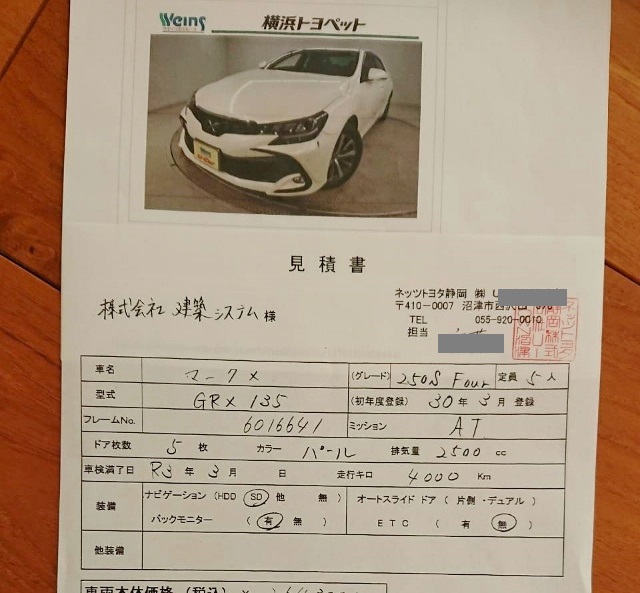 Weins 横浜トヨペット
見積書
株式会社 建築システム 様
ネッツトヨタ静岡 ㈱ U
〒410-0007 沼津市西沢田
TEL 055-920-0010
担当
車名 マークX (グレード) 250S Four 定員 5 人
型式 GRX 135 (初年度登録) 30 年 3 月 登録
フレームNo. 6016641 ミッション AT
ドア枚数 5 枚 カラー パール 排気量 2500 cc
車検満了日 R3 年 3 月 日 走行キロ 4000 Km
装備 ナビゲーション (HDD SD 他 無) オートスライド ドア (片側・デュアル)
バックモニター (有 無) ETC (有 無)
他装備
車両本体価格 (税込) ¥